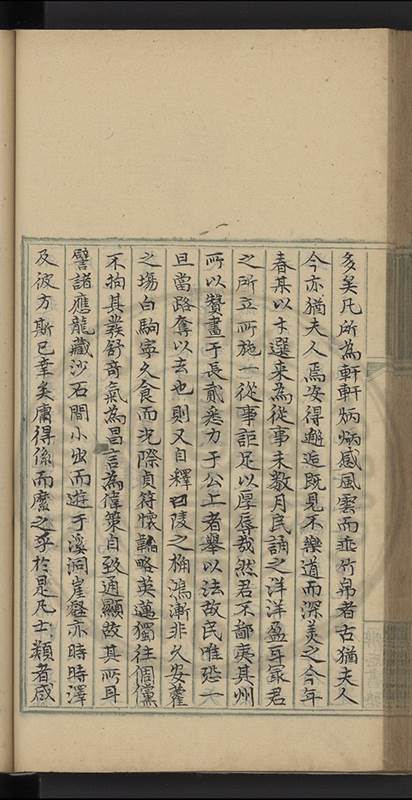 多矣凡所為軒軒炳炳感風雲而垂竹帛者古猶夫人
今亦猶夫人焉安得邂逅既見不樂道而深美之今年
春某以才選来為從事未數月民誦之洋洋盈耳最君
之所立所施一從事詎足以厚辱哉然君不鄙夷其州
所以贊畫于長貳悉力于公上者舉以法故民唯恐一
旦當路奪以去也則又自釋曰陵之桷鴻漸非久安藿
之場白駒寧久食而况際貞符懷韜略英邁獨往倜儻
不拘其發舒奇氣為昌言為偉策自致通顯故其所耳
譬諸應龍藏沙石間小出而遊于溪洞崖壑亦時時澤
及彼方斯已幸矣庸得係而縻之乎於是凡士類者咸